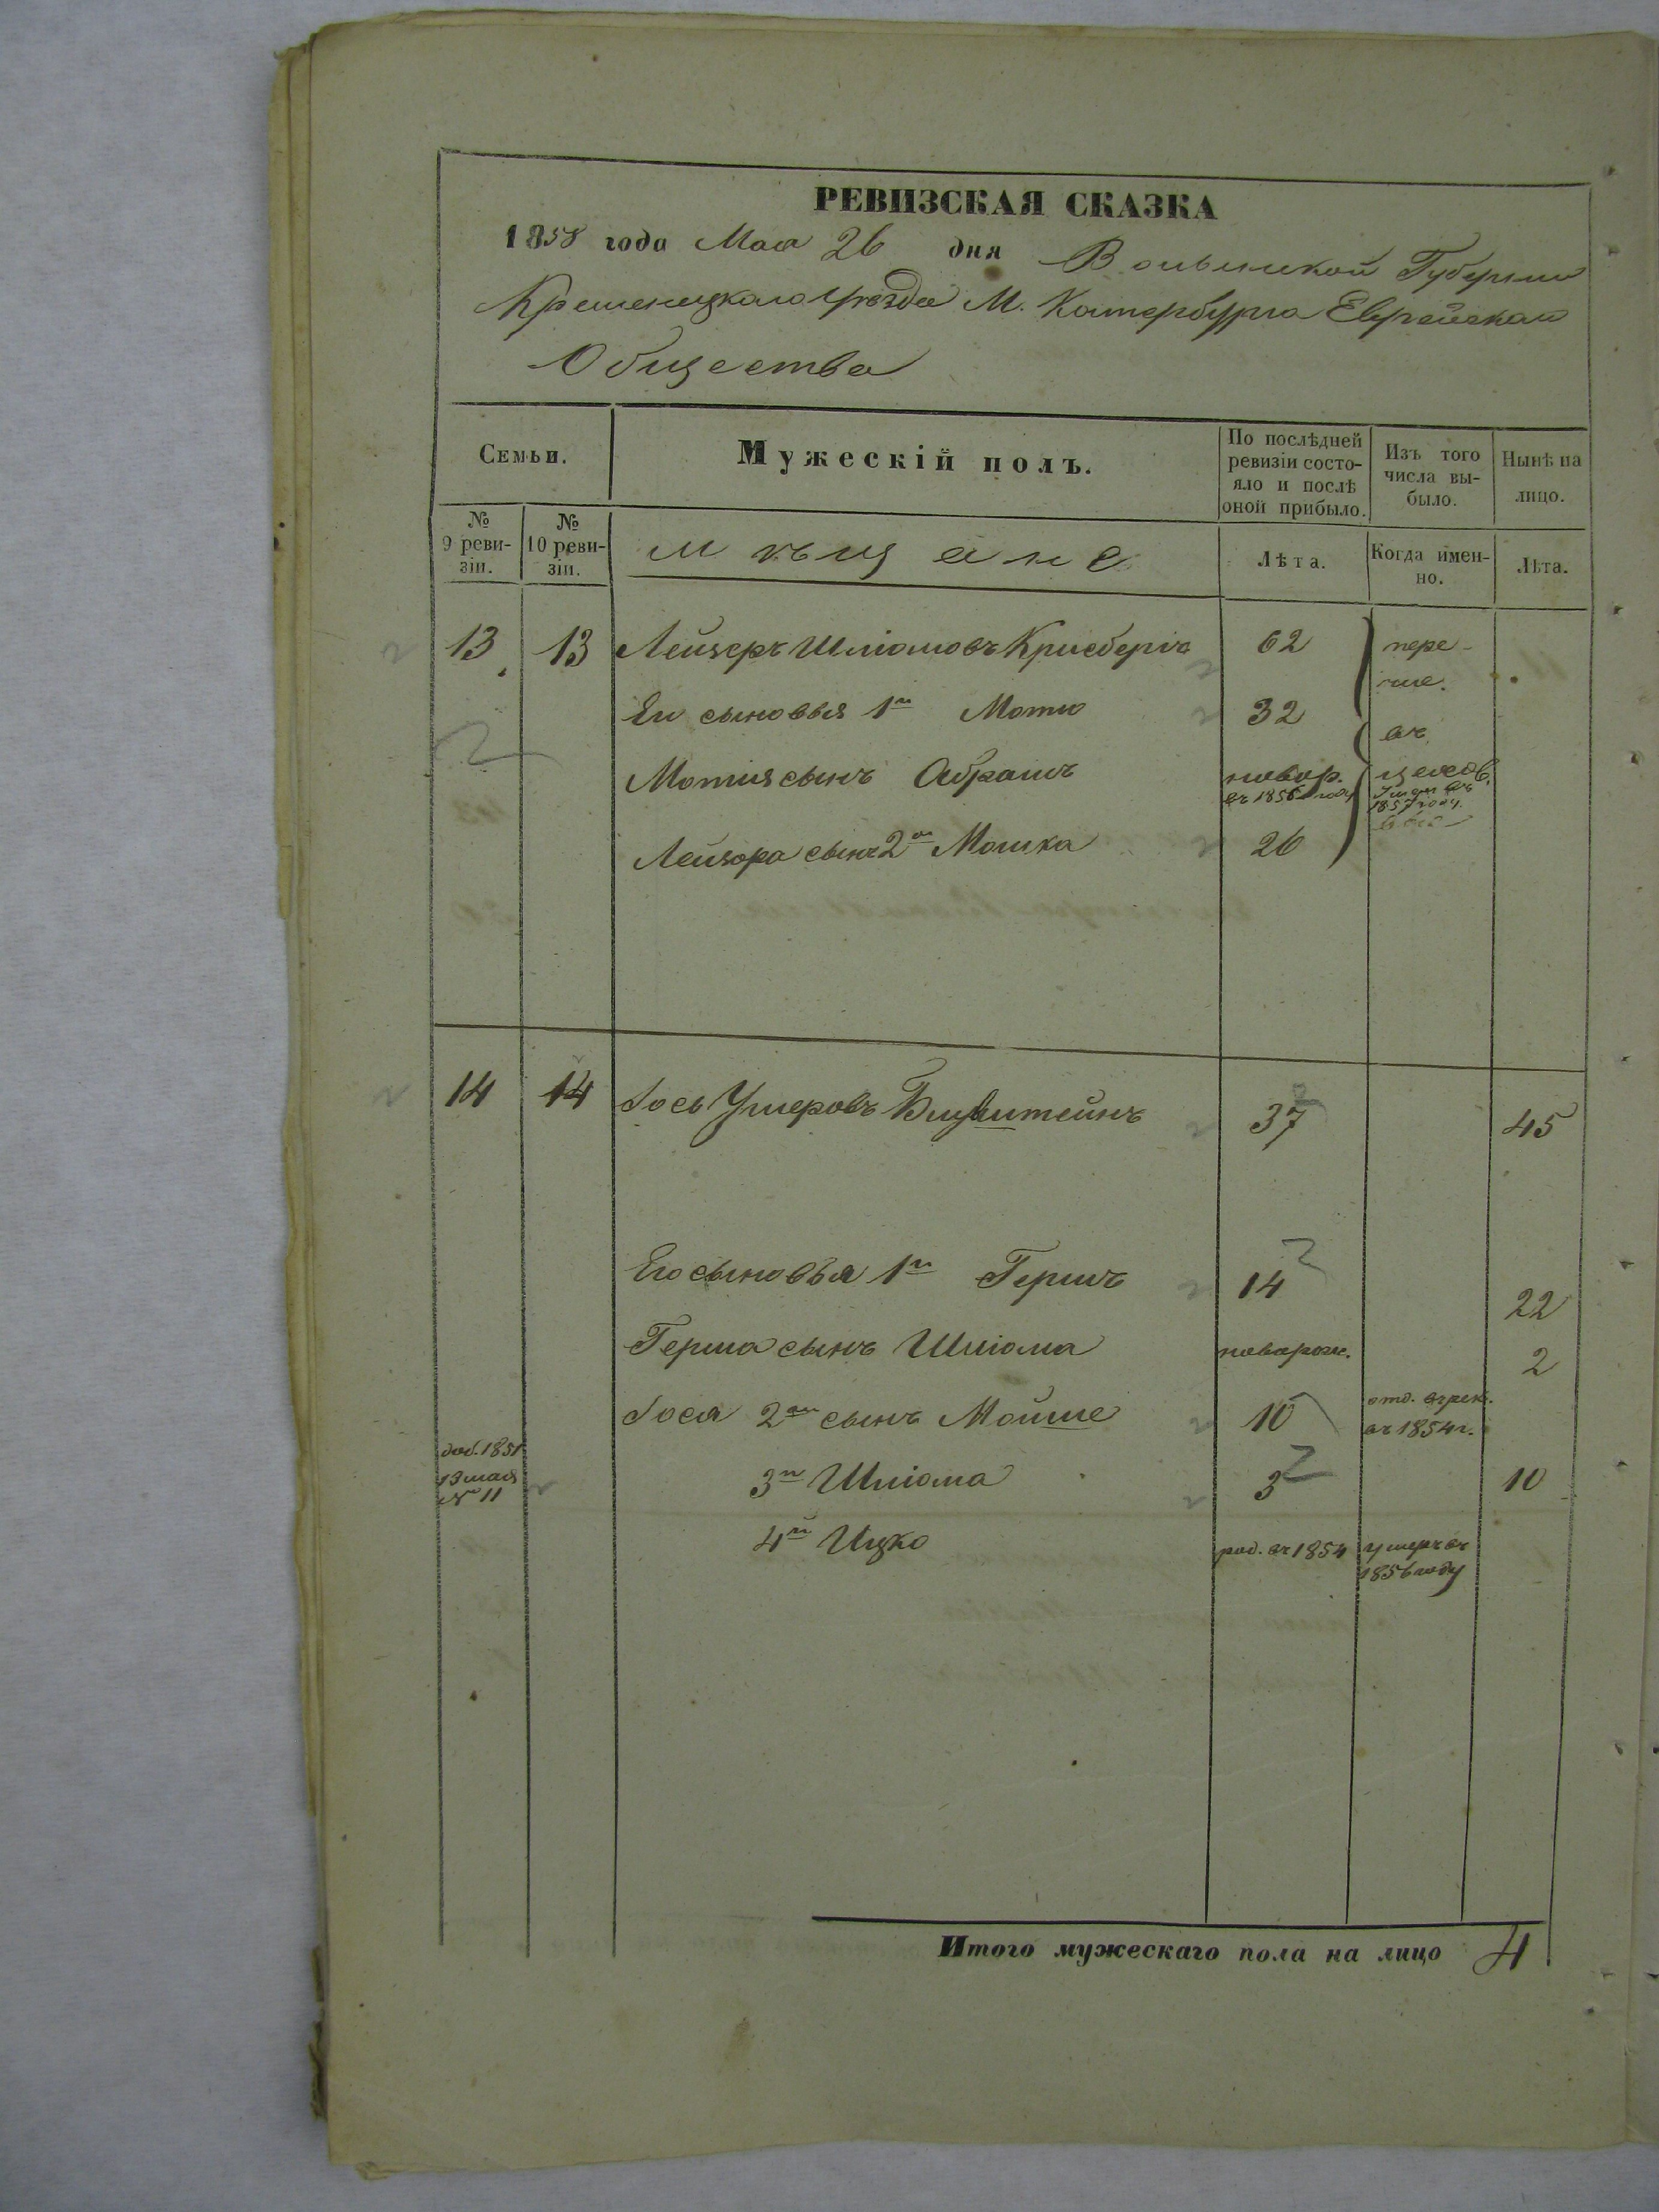 РЕВИЗСКАЯ СКАЗКА
1858 года Мая 26 дня Волынской Губернии
Кременецкаго Уѣзда М. Катербурга Еврейскаго
Общества
Семьи.
Мужескій полъ.
По послѣдней ревизіи состояло и послѣ оной прибыло.
Изъ того числа выбыло.
Нынѣ на лицо.
№ 9 ревизіи.
№ 10 ревизіи.
мѣщане
Лѣта.
Когда именно.
Лѣта.
13 13 Лейзеръ Шліомовъ Крисбергъ 62 пере-
числ.
Его сыновья 1й Мотю 32 въ
Мотия сынъ Абрамъ новор. въ 1856 году
1857 году
Лейзора сынъ 2ой Мошка 26
14 14 Іось Умеровъ Блувштейнъ 37 45
Его сыновья 1й Гершъ 14 22
Герша сынъ Шліома новорож. 2
Іося 2ой сынъ Мойше 10 отд. въ рек. въ 1854 г.
доб. 1851 13 мая № 11 3й Шліома 3 10
4й Ицко род. въ 1854 умеръ въ 1856 году
Итого мужескаго пола на лицо 4